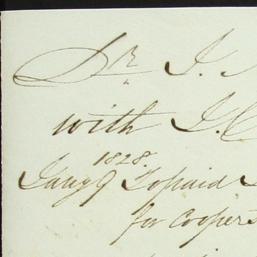 Dr J.
with J. C
1828.
Jany 9 To paid
for Coopers